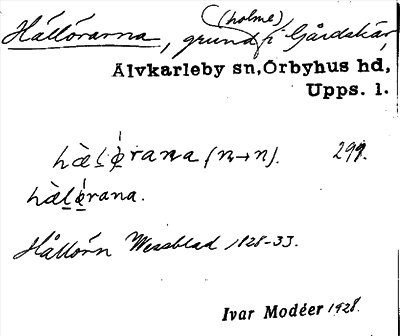 (holme)
Hållörarna, grund i Gårdskär,
Älvkarleby sn, Örbyhus hd,
Upps. l.
hàlø̀rana (n→n). 299.
hàlérana.
Hållörn Wessblad 1828-33.
Ivar Modéer 1928.